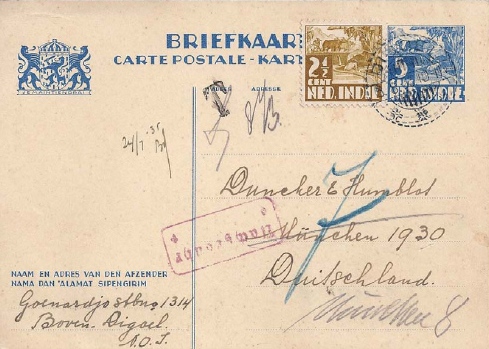 BRIEFKAAR
CARTE POSTALE - KART
2½
CENT
NED. INDIE
5
CENT
NED. INDIE
ADRESSE
T
24/1 '35
Duncker & Humblot
München 1930
Duitschland.
7
München 8
NAAM EN ADRES VAN DEN AFZENDER
NAMA DAN 'ALAMAT SIPENGIRIM
Goenardjo stbno 1314
Boven-Digoel.
N.O.I.